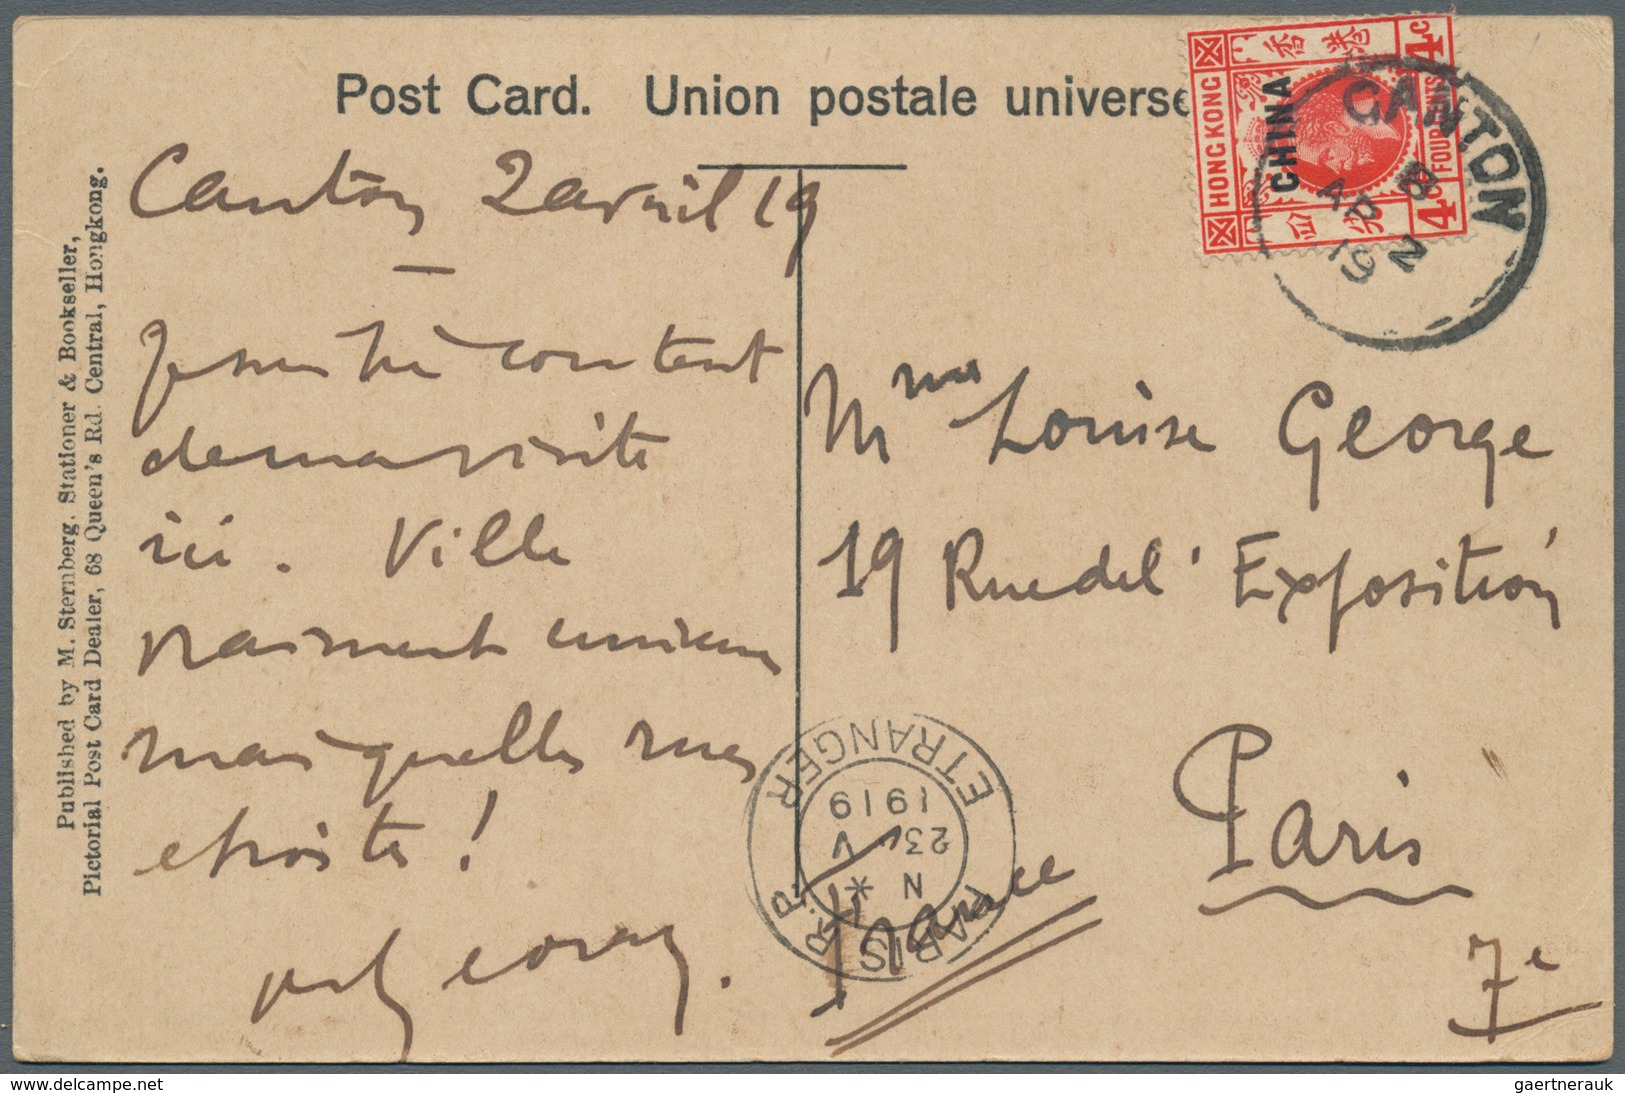 Post Card. Union postale univers
Canton 2 avril 19
Je suis très content
de ma visite
ici. Ville
vraiment curieuse
mais quelles rues
étroites!
Mme Louise George
19 Rue de l'Exposition
Paris
7e
France
Published by M. Sternberg, Stationer & Bookseller,
Pictorial Post Card Dealer, 68 Queen's Rd. Central, Hongkong.
HONG KONG
香港
CHINA
4c
FOUR CENTS
4c
四
CANTON
B
AP 2
19
PARIS R.P.
ETRANGER
N *
23 V
1919
gaertnerauk